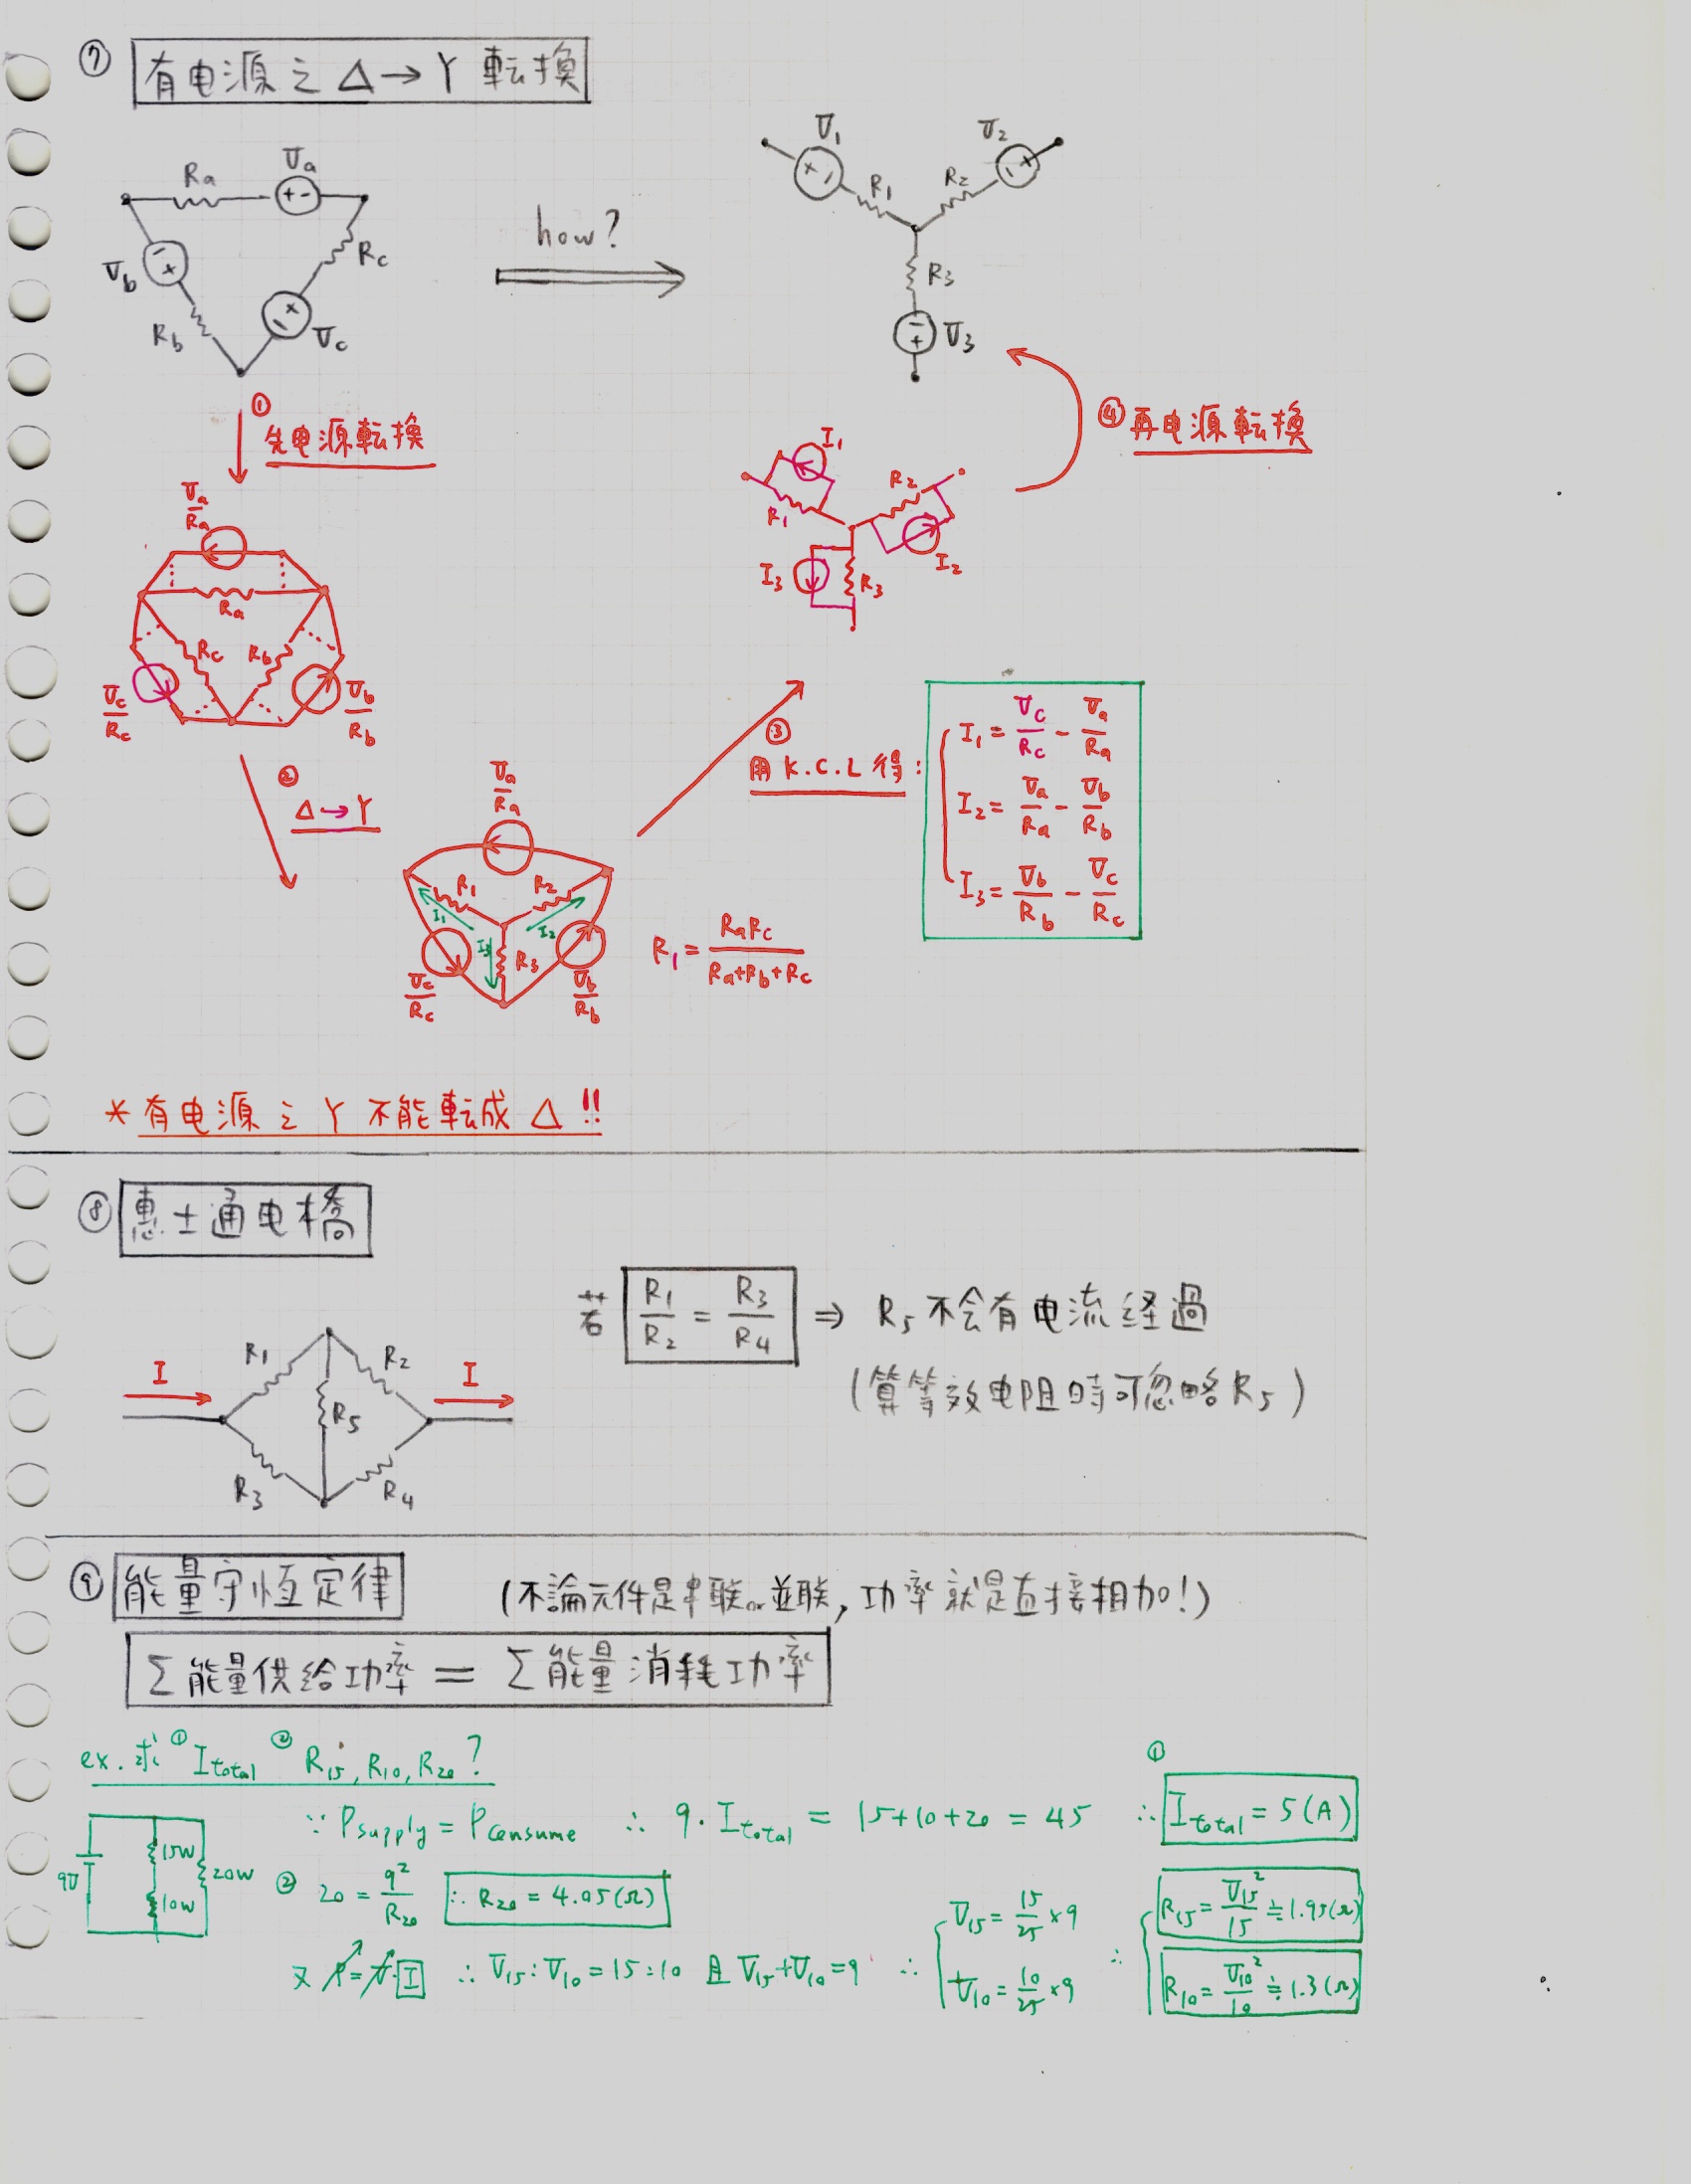 ⑦ 有电源之 Δ→Y 転換
Ra Va
Vb Rb Rc Vc
how?
V1 V2
R1 R2
R3
V3
① 先电源転換
④ 再电源転換
Va/Ra
Ra
Rc Rb
Vc/Rc Vb/Rb
I1
R1 R2
I2
I3 R3
② Δ→Y
Va/Ra
R1 R2
I1 I2
I3 R3
Vc/Rc Vb/Rb
R1 = RaRc/(Ra+Rb+Rc)
③ 用 K.C.L 得:
I1 = Vc/Rc - Va/Ra
I2 = Va/Ra - Vb/Rb
I3 = Vb/Rb - Vc/Rc
* 有电源之 Y 不能転成 Δ!!
⑧ 惠士通电橋
I I
R1 R2
R5
R3 R4
若 R1/R2 = R3/R4 ⇒ R5 不会有电流経過
(算等效电阻時可忽略 R5)
⑨ 能量守恆定律 (不論元件是串联or並联, 功率就是直接相加!)
Σ能量供给功率 = Σ能量消耗功率
ex. 求 ① Itotal ② R15, R10, R20?
∵ Psupply = Pconsume ∴ 9·Itotal = 15+10+20 = 45 ∴ ① Itotal = 5(A)
9V 15W 10W 20W
② 20 = 9²/R20 ∴ R20 = 4.05(Ω)
又 P=V·I ∴ V15:V10 = 15:10 且 V15+V10=9 ∴
V15 = 15/25 ×9
V10 = 10/25 ×9
∴
R15 = V15²/15 ≒ 1.95(Ω)
R10 = V10²/10 ≒ 1.3(Ω)